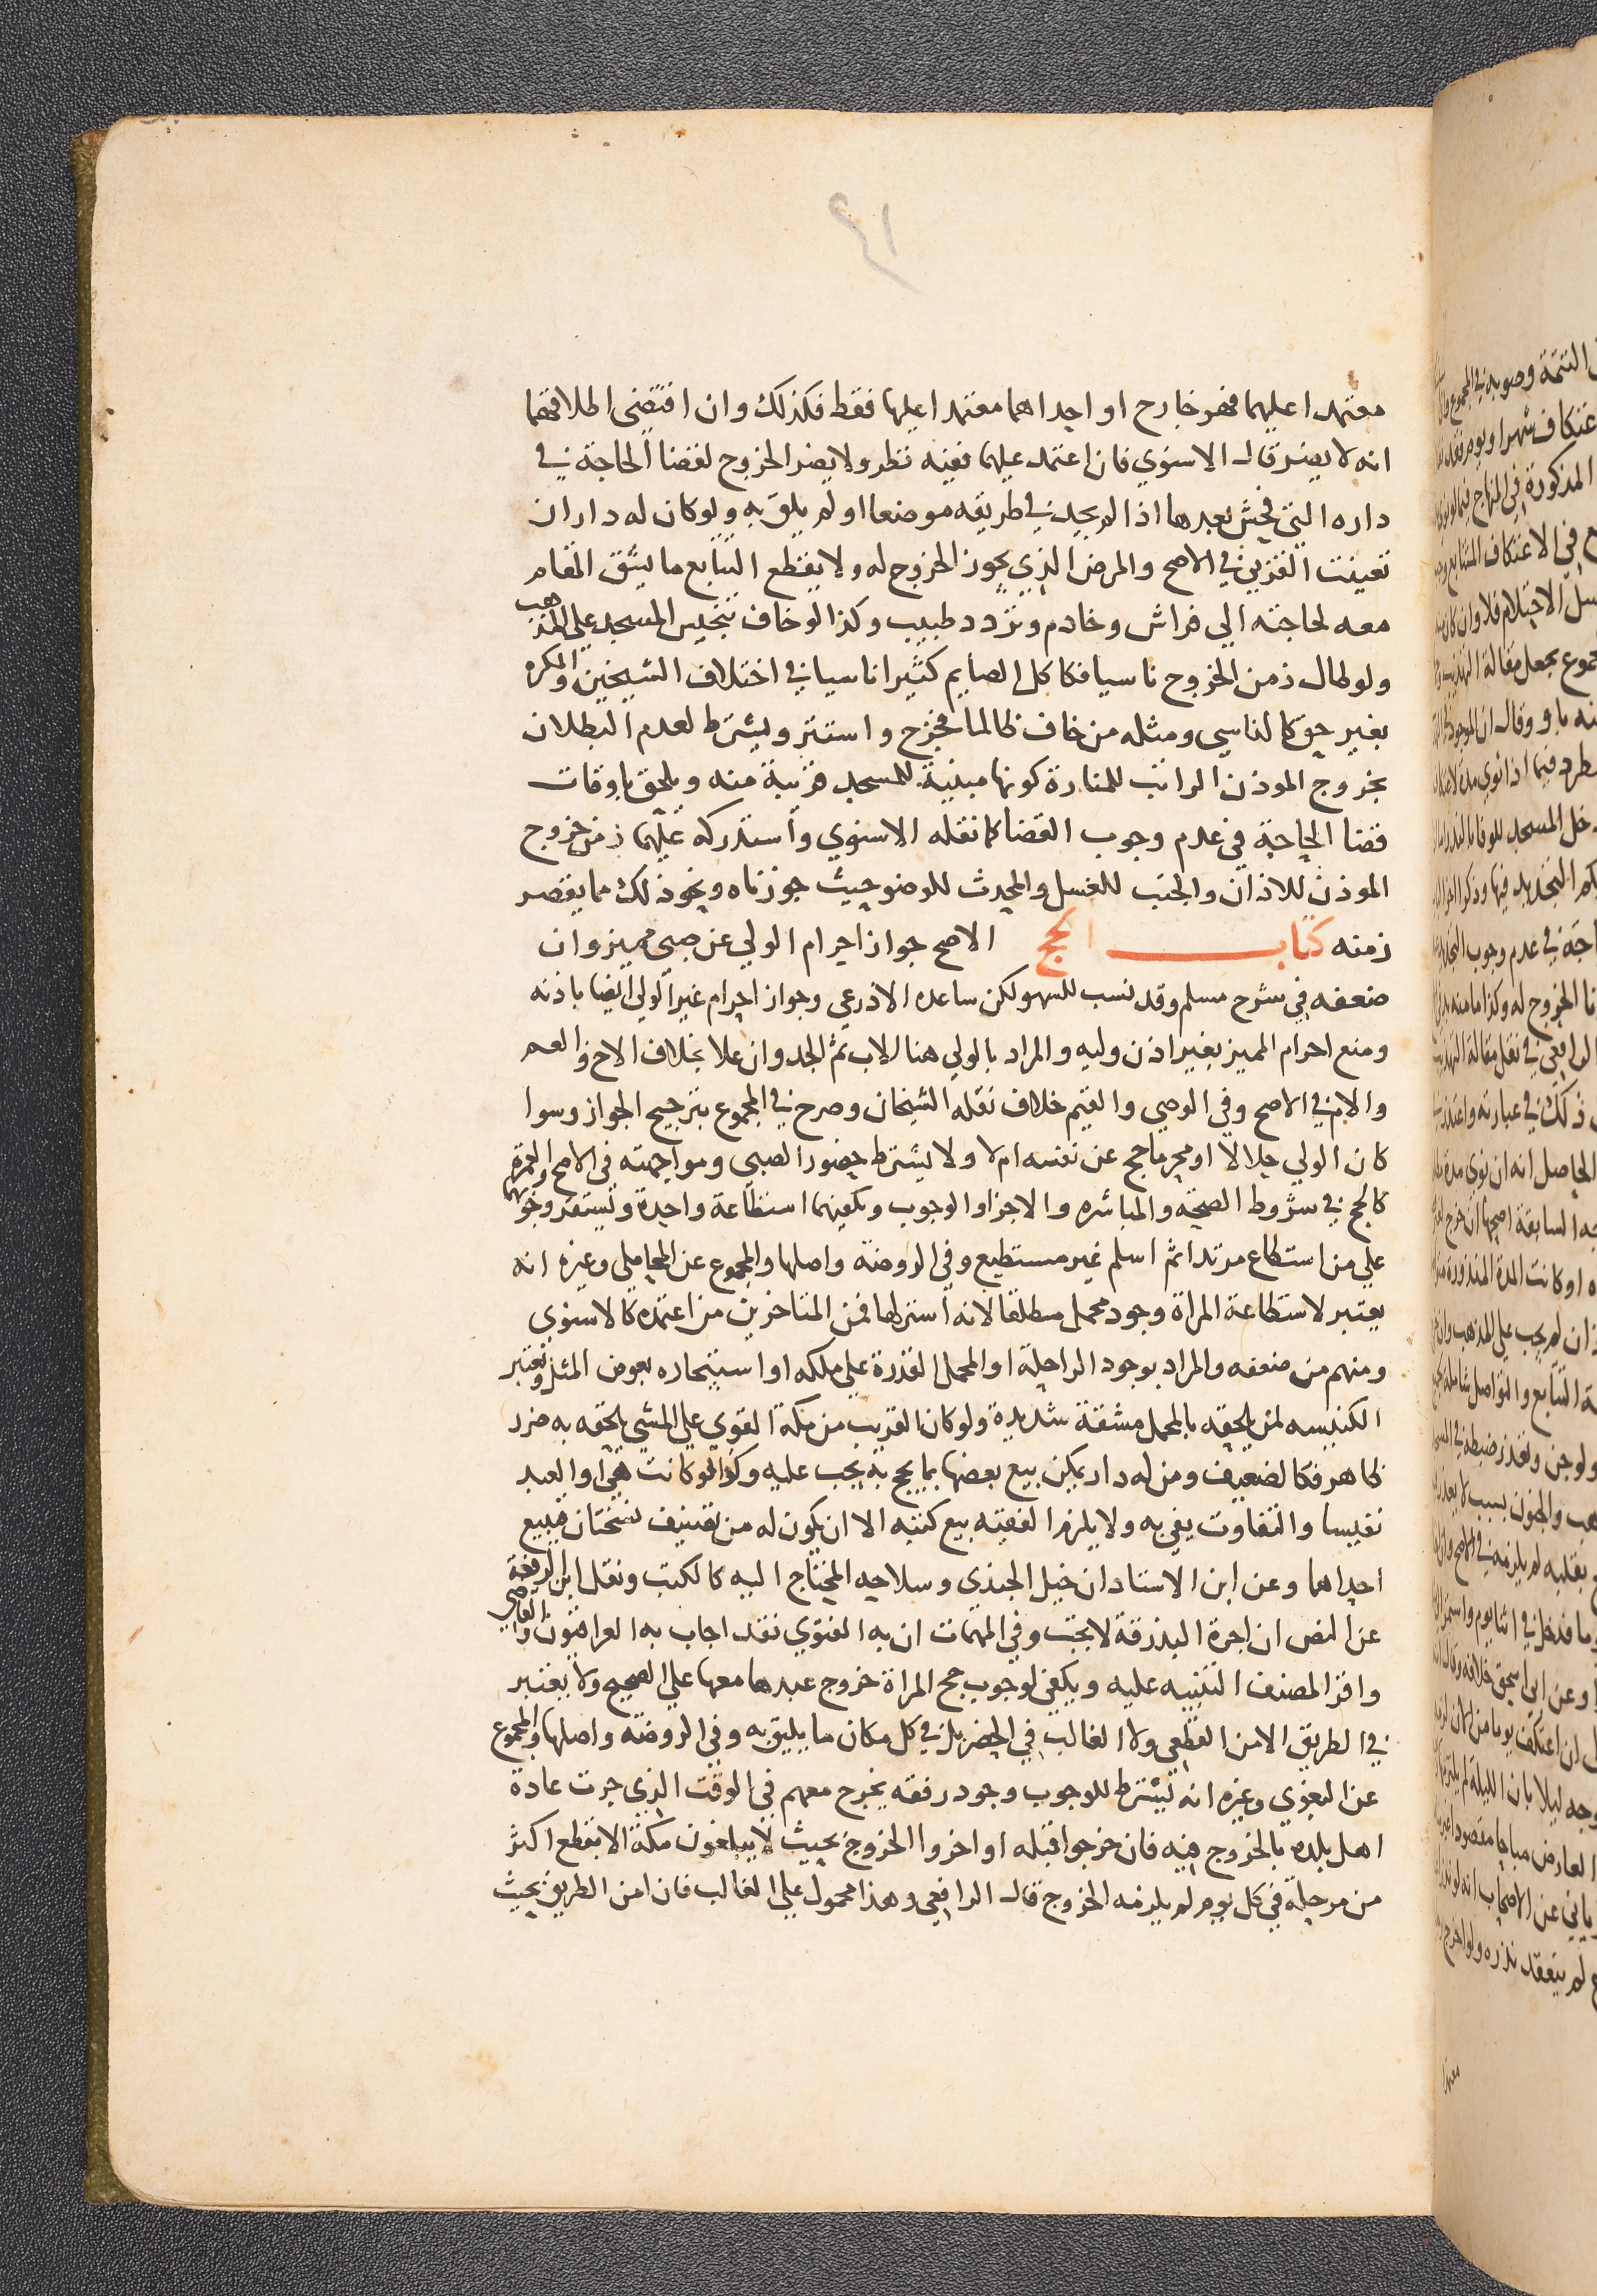 معتمدا عليهما فهو خارج او احداهما معتمدا عليها فقط فكذلك وان اقتضى اطلاقهما
انه لا يضر قال الاسنوي فان اعتمد عليهما ففيه نظر ولا يضر الخروج لقضا الحاجة في
داره التي فحش بعدها اذا لم يجد في طريقه موضعا او لم يلق به ولو كان له داران
تعينت القربى في الاصح والمرض الذي يجوز الخروج له ولا يقطع التتابع ما يشق المقام
معه لحاجته الي فراش وخادم وتردد طبيب وكذا لو خاف تنجيس المسجد علي المذهب
ولو طال زمن الخروج ناسيا فكاكل الصايم كثيرا ناسيا في اختلاف الشيخين والمكره
بغير حق كالناسي ومثله من خاف ظالما فخرج واستتر ويشترط لعدم البطلان
بخروج الموذن الراتب للمنارة كونها مبنية للمسجد قريبة منه ويلحق باوقات
قضا الحاجة في عدم وجوب القضا كما نقله الاسنوي واستدركه عليهما زمن خروج
الموذن للاذان والجنب للغسل والمحدث للوضو حيث جوزناه ونحو ذلك مما يقصر
زمنه كتاب الحج الاصح جواز احرام الولي عن صبي مميز وان
ضعفه في شرح مسلم وقد نسب للسهو لكن ساعده الاذرعي وجواز احرام غير الولي ايضا باذنه
ومنع احرام المميز بغير اذن وليه والمراد بالولي هنا الاب ثم الجد وان علا بخلاف الاخ والعم
والام في الاصح وفي الوصي والقيم خلاف نقله الشيخان وصرح في المجموع بترجيح الجواز وسوا
كان الولي حلالا او محرما حج عن نفسه ام لا ولا يشترط حضور الصبي ومواجهته في الاصح والعمرة
كالحج في شروط الصحة والمباشرة والاجزا والوجوب ويكفيهما استطاعة واحدة وتستقر وجوبهما
علي من استطاع مرتدا ثم اسلم غير مستطيع وفي الروضة واصلها والمجموع عن المحاملي وغيره انه
يعتبر لاستطاعة المراة وجود محمل مطلقا لانه استر لها فمن المتاخرين من اعتمده كالاسنوي
ومنهم من ضعفه والمراد بوجود الراحلة او المحمل القدرة علي ملكه او استيجاره بعوض المثل وتعتبر
الكنيسه لمن يلحقه بالمحمل مشقة شديدة ولو كان القريب من مكة القوي علي المشي يلحقه به ضرر
ظاهر فكالضعيف ومن له دار يمكن بيع بعضها بما يحج به يجب عليه وكذا لو كانت هي او العبد
نفيسا والتفاوت يفي به ولا يلزم الفقيه بيع كتبه الا ان يكون له من تصنيف نسختان فيبيع
احداهما وعن ابن الاستاد ان خيل الجندي وسلاحه المحتاج اليه كالكتب ونقل ابن الرفعة
عن النص ان اجرة البذرقة لا تجب وفي المهمات ان به الفتوي فقد اجاب به العراقيون والقاضي
واقر المصنف التنبيه عليه ويكفي لوجوب حج المراة خروج عبدها معها علي الصحيح ولا يعتبر
في الطريق الامن القطعي ولا الغالب في الحضر بل في كل مكان ما يليق به وفي الروضه واصلها والمجموع
عن البغوي وغيره انه يشترط للوجوب وجود رفقه يخرج معهم في الوقت الذي جرت عادة
اهل بلده بالخروج فيه فان خرجوا قبله او اخروا الخروج بحيث لا يبلغون مكة الا بقطع اكثر
من مرحلة في كل يوم لم يلزمه الخروج قال الرافعي وهذا محمول علي الغالب فان امن الطريق بحيث